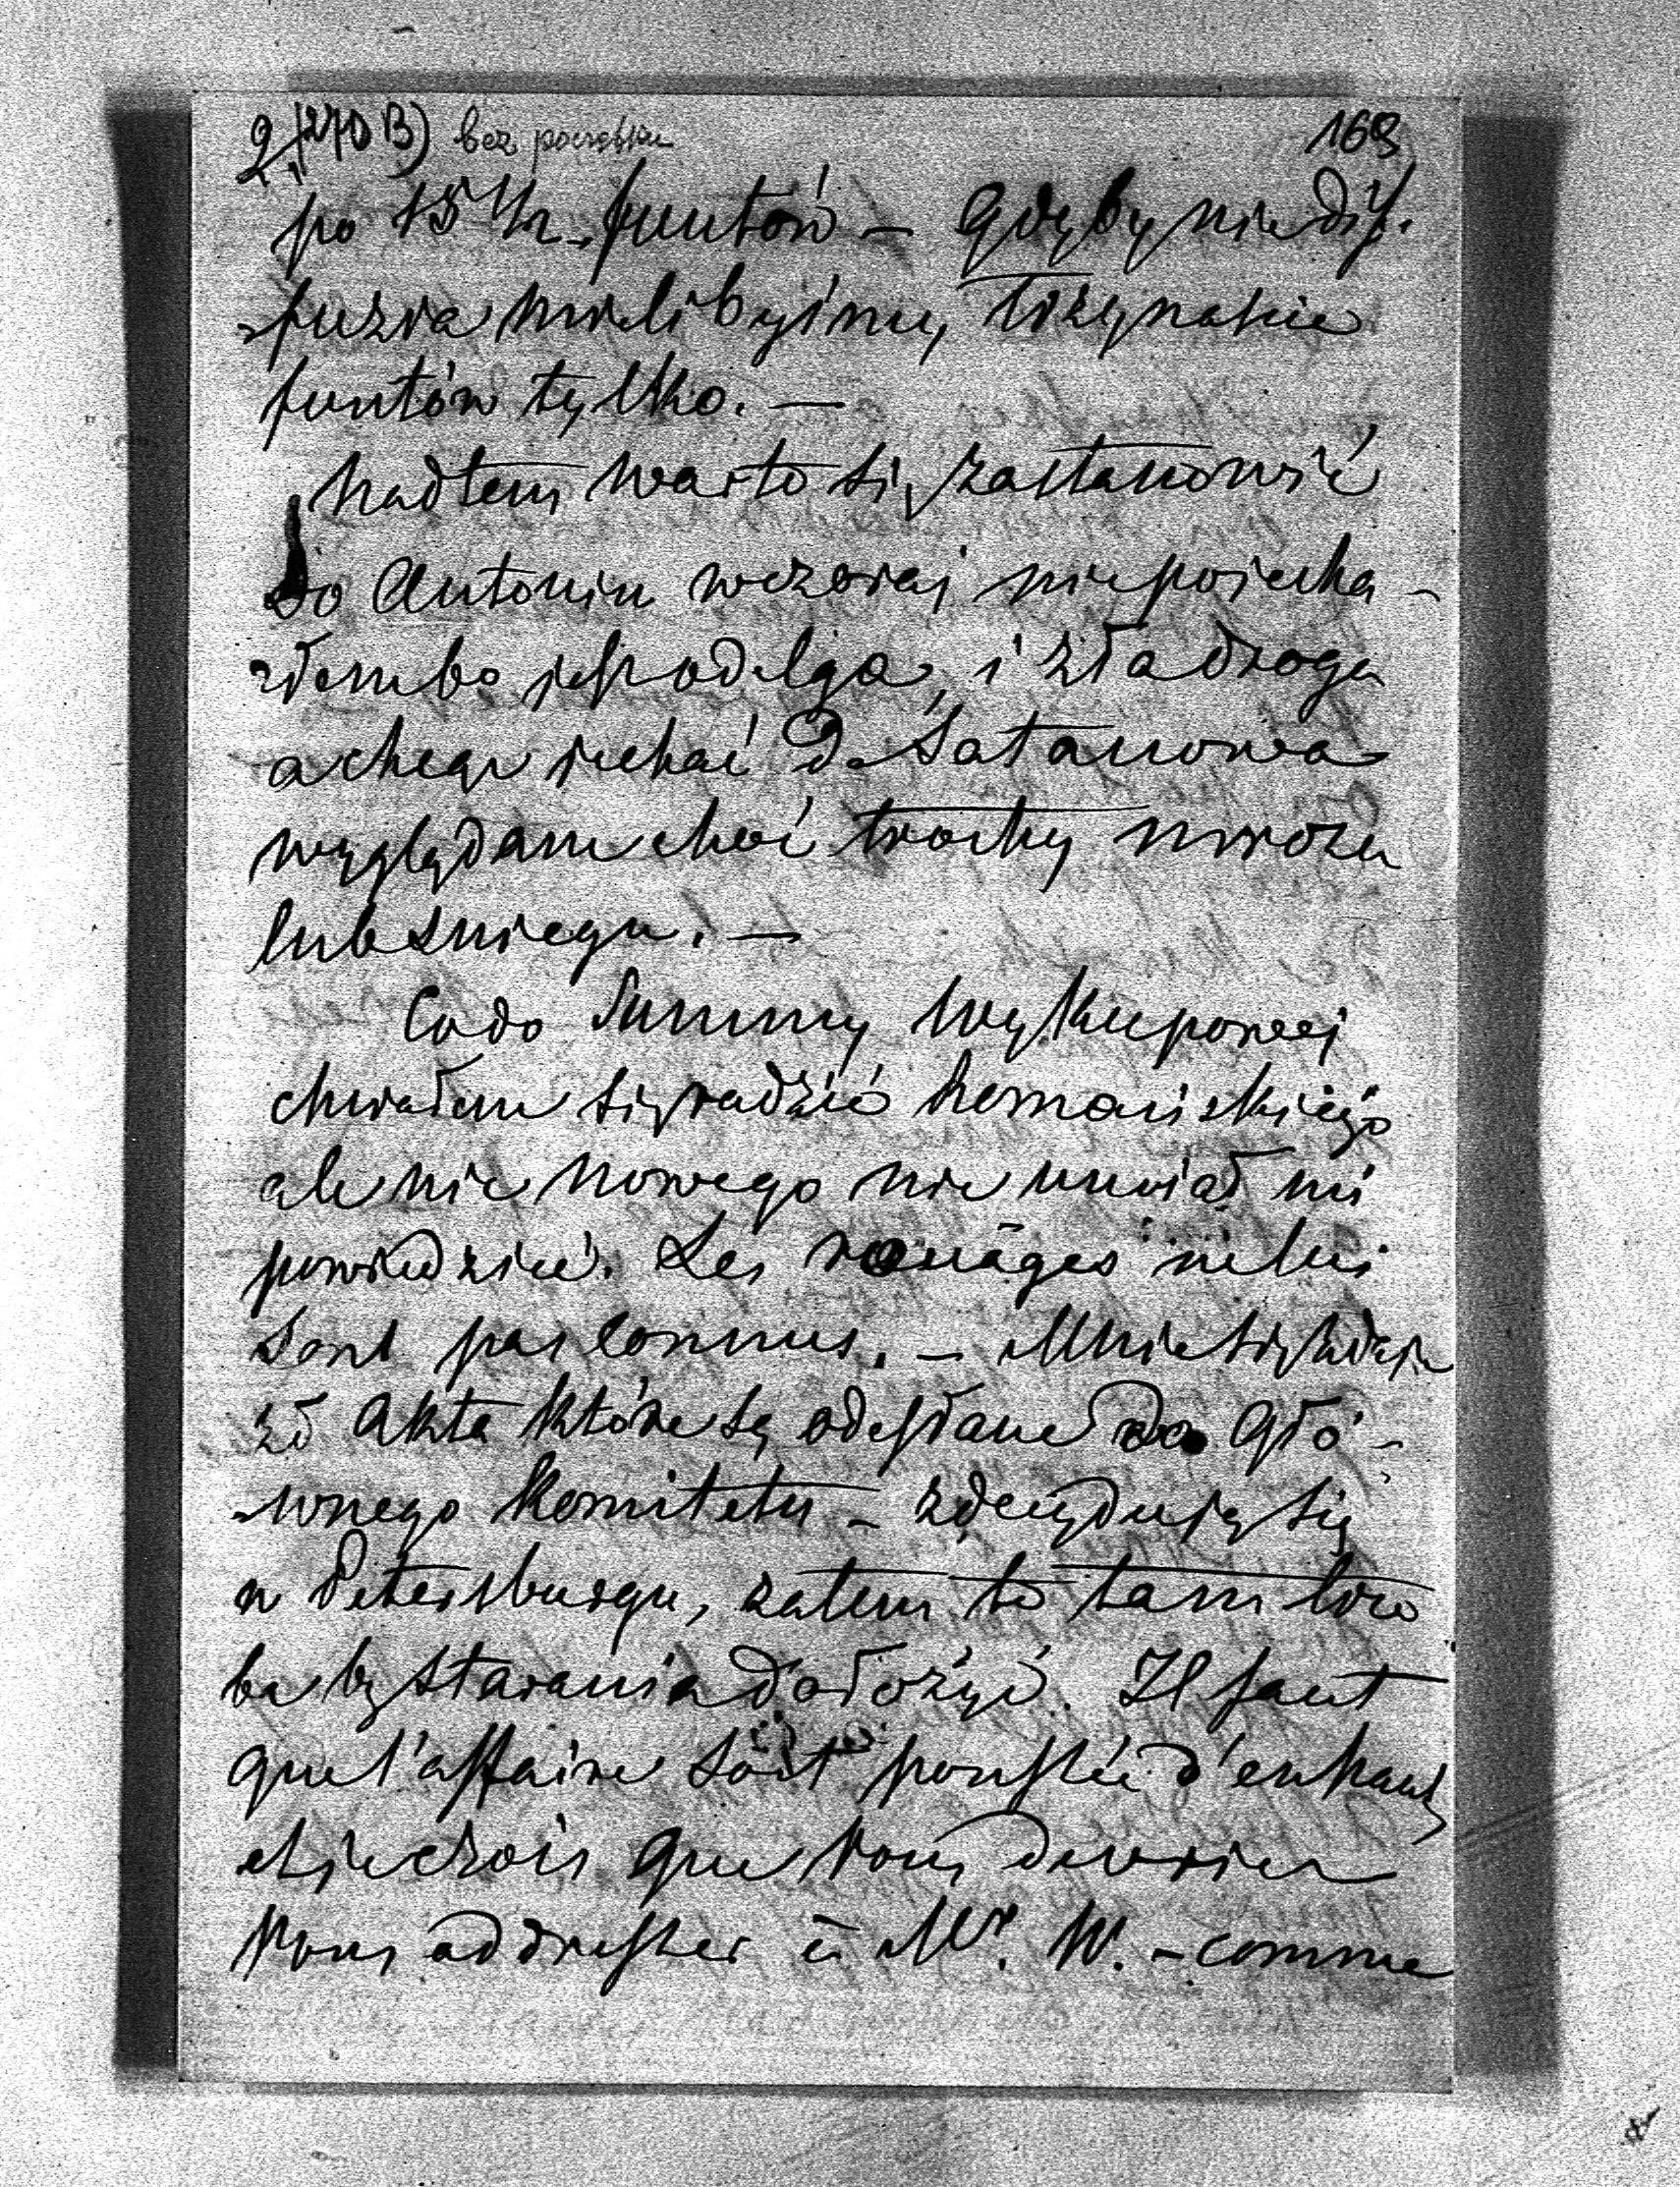 2, (270 B) bez początku 163
po 15 1/2 funtów – gdyby nie dyf-
-fuzia mielibyśmy trzynaście
funtów tylko. —
Nad tem warto się zastanowić
Do Antonin wczoraj nie poiecha-
-łem bo jest odelga, i zła droga
a chcąc jechać do Satanowa
wyglądam choć trochę mrozu
lub śniegu. —
Co do Summy Wykupowej
chciałem się radzić
ale nic nowego nie umiał mi
powiedzieć. Les rouäges ne lui
sont pas connus. – Mnie się zdaje
że Akta które są odesłane do Głó-
-wnego Komitetu – zdecydują się
w Petersburgu, zatem to tam trze
ba by starania dołożyć. Il faut
que l'affaire soit poussée d'en haut
et je crois que vous devriez
vous addresser à Mr. W. – comme